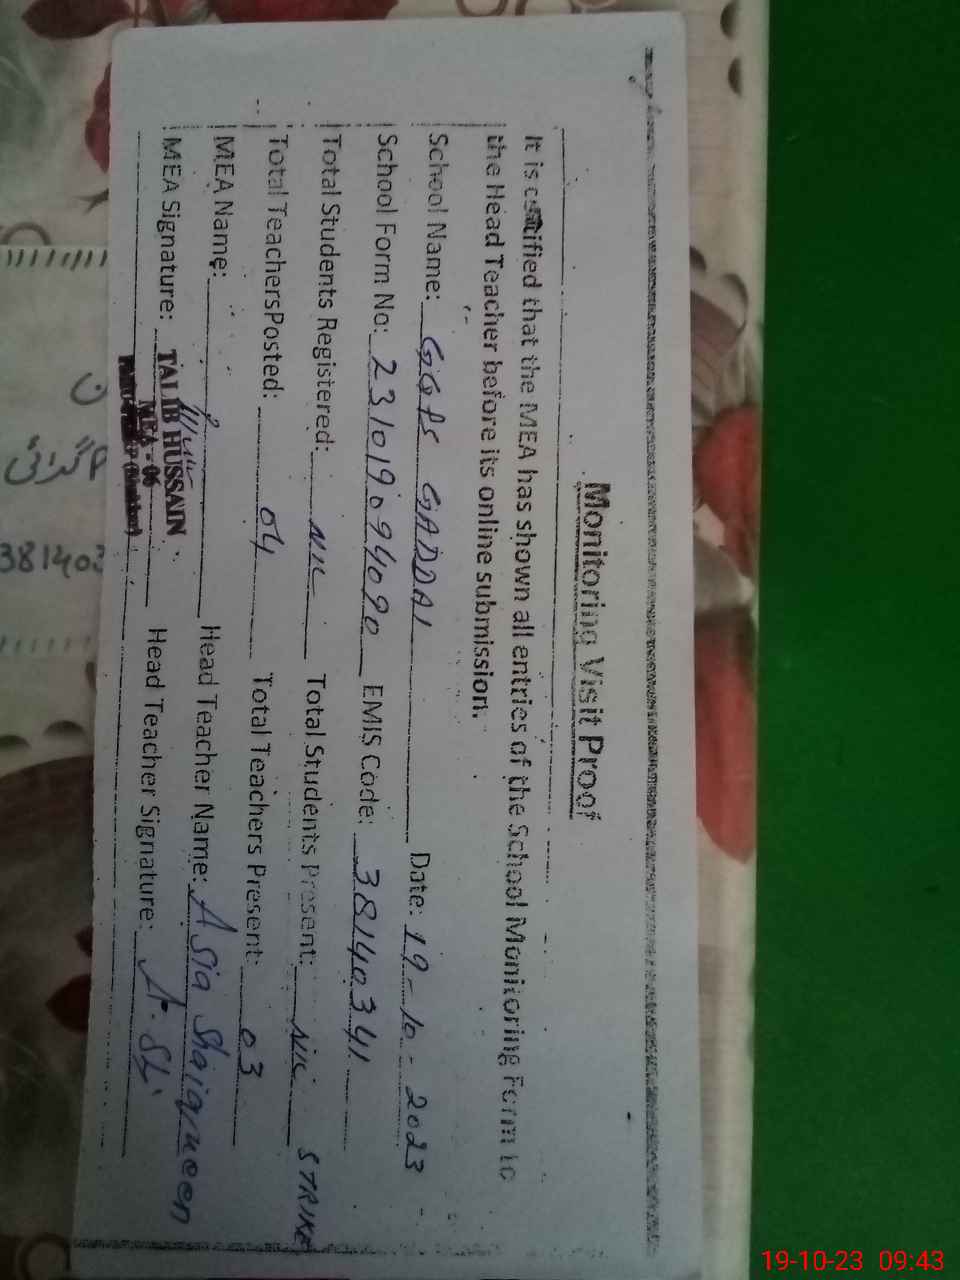 Monitoring Visit Proof
It is certified that the MEA has shown all entries of the School Monitoring Form to
the Head Teacher before its online submission.
School Name: GGPS GADDAI Date: 19-10-2023
School Form No: 231019094090 EMIS Code: 38140341
Total Students Registered: NIL Total Students Present: NIL STRIKE
Total TeachersPosted: 04 Total Teachers Present: 03
MEA Name: Head Teacher Name: Asia Shaiqmeen
MEA Signature: TALIB HUSSAIN Head Teacher Signature: A. Sh.
MEA - 06
381403
19-10-23 09:43